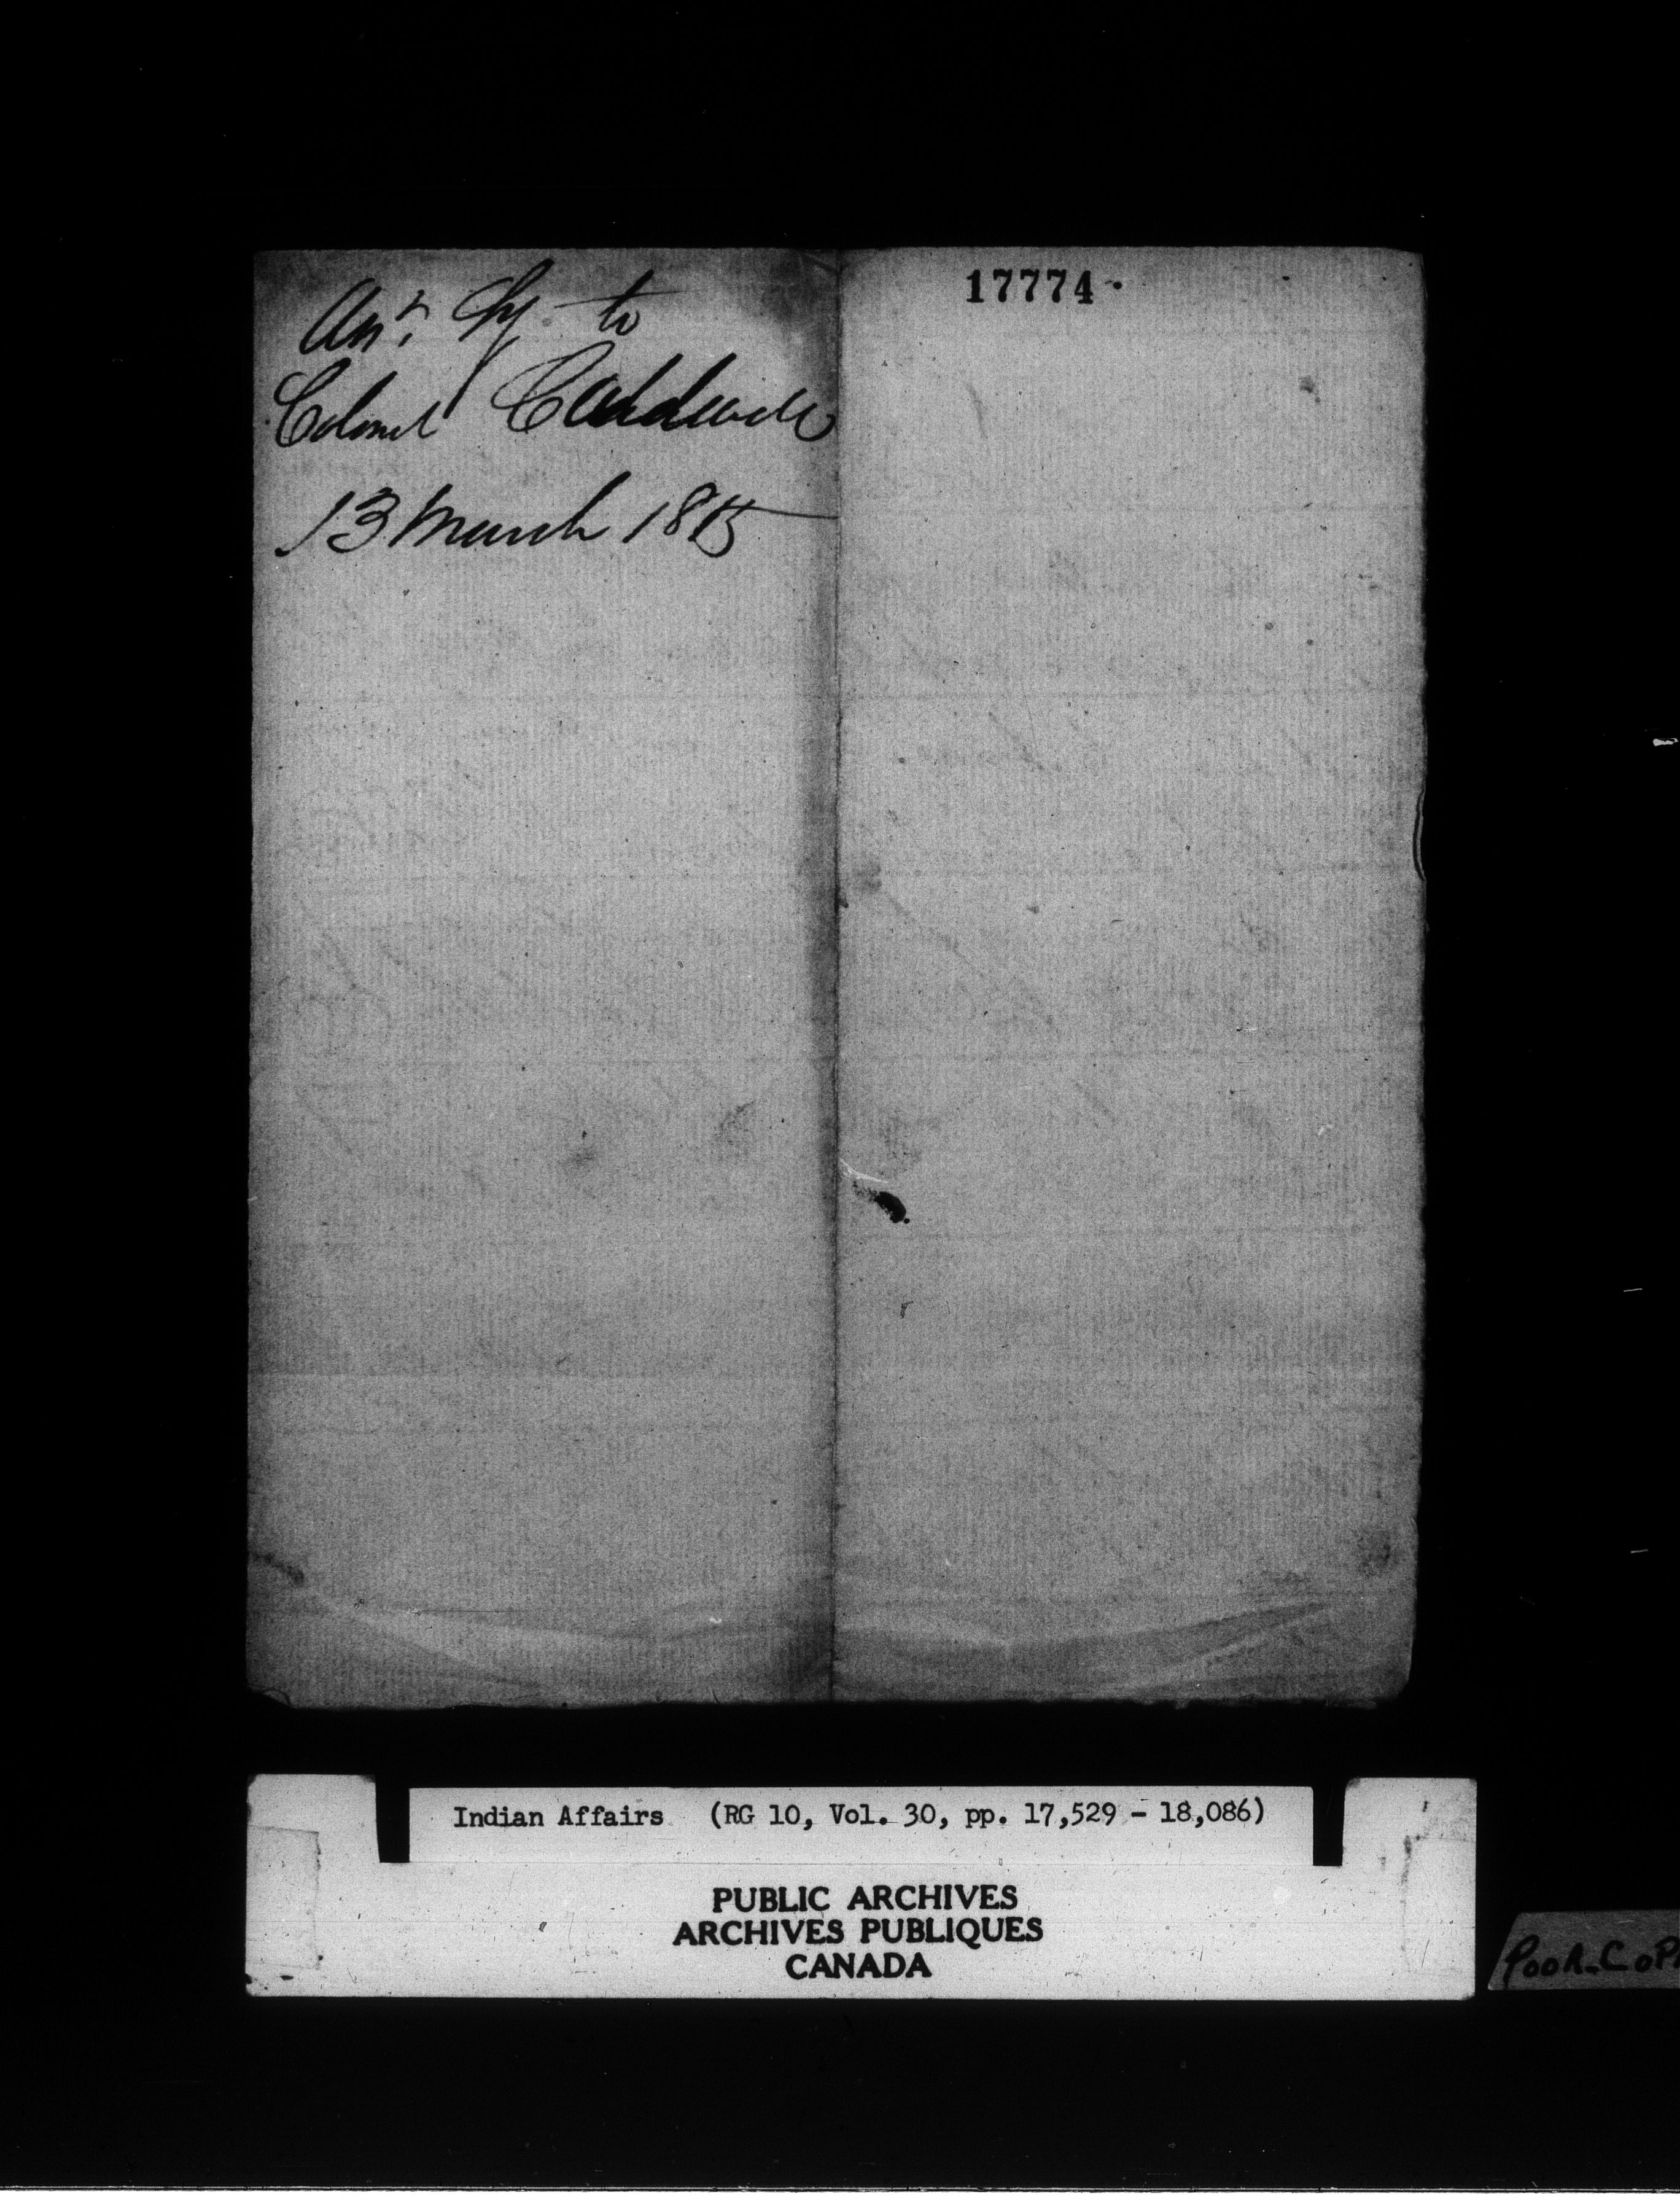 Ansr. Cy. to
Colonel Caldwell
13 March 1815
17774
Indian Affairs (RG 10, Vol. 30, pp. 17,529 - 18,086)
PUBLIC ARCHIVES
ARCHIVES PUBLIQUES
CANADA
POOR COP